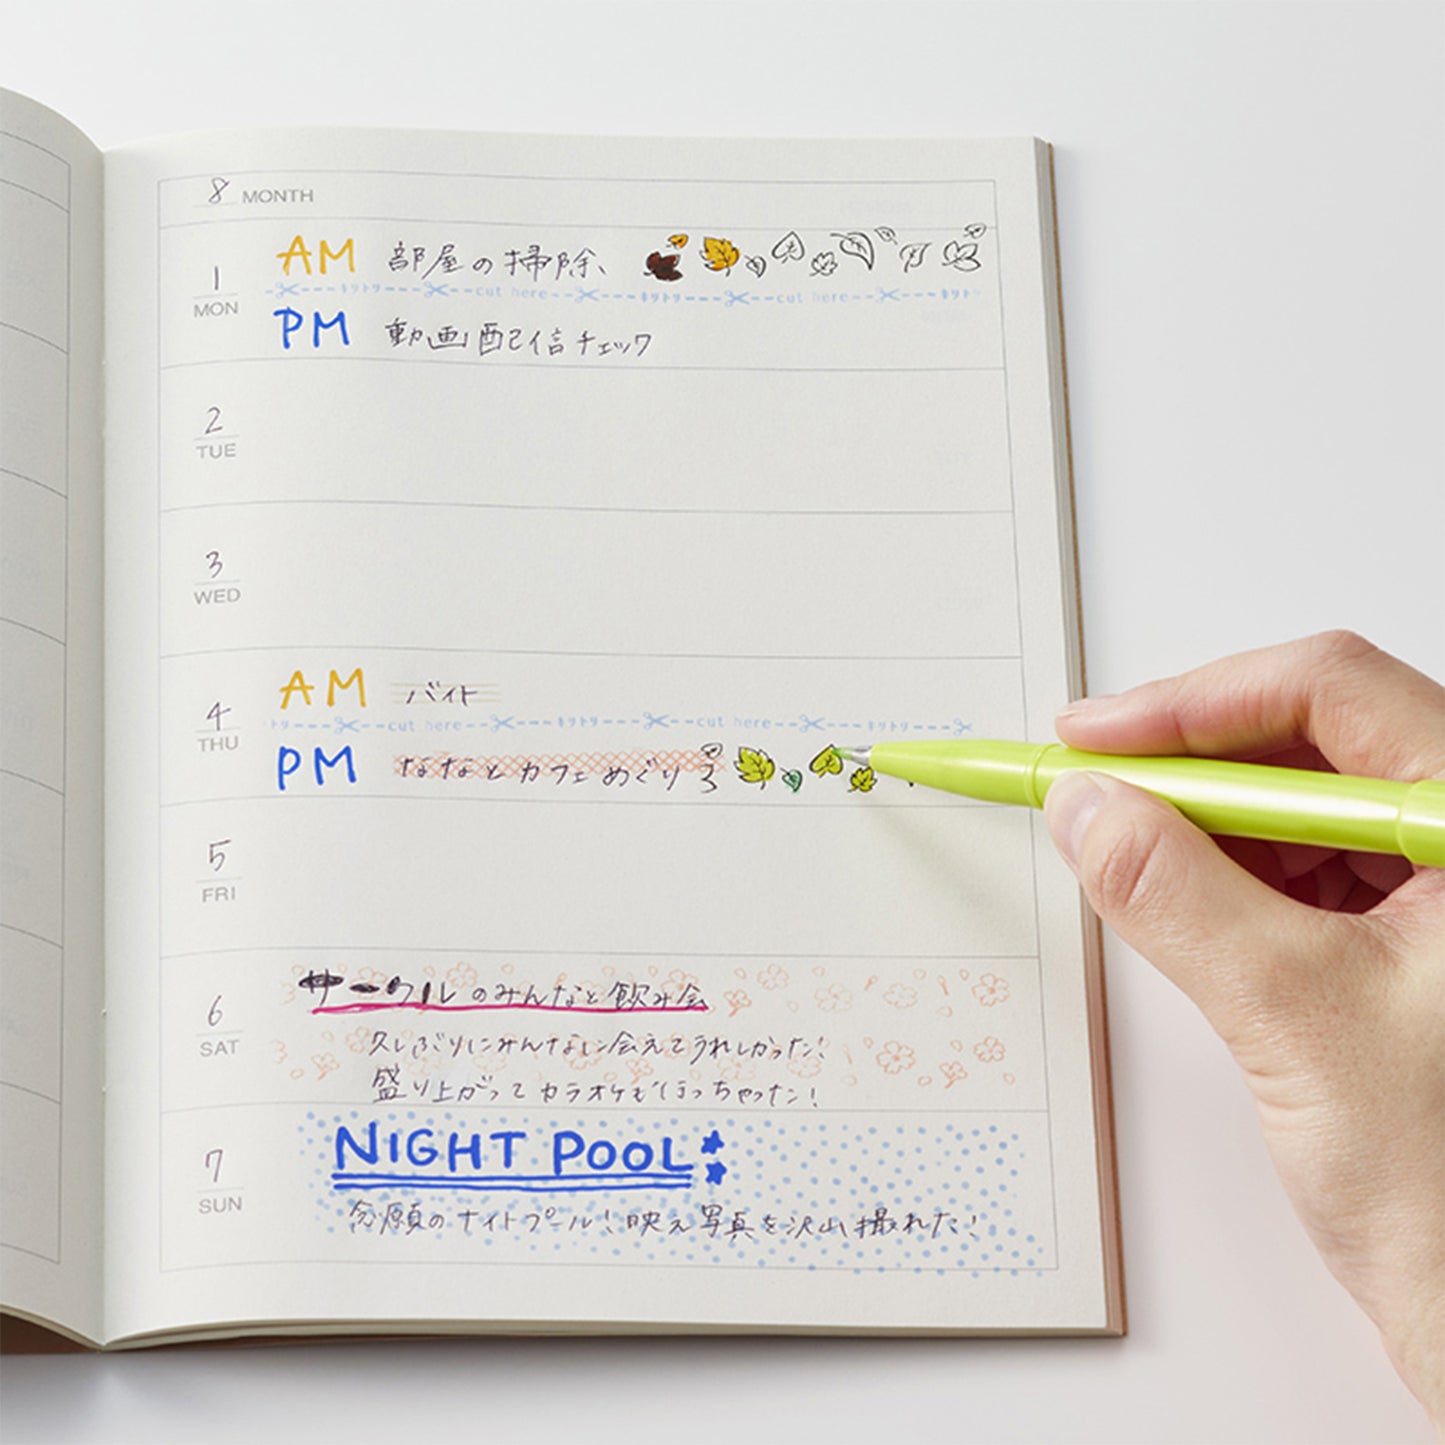 8 MONTH
1
MON
AM 部屋の掃除、
キリトリ cut here キリトリ cut here キリト
PM 動画配信チェック
2
TUE
3
WED
4
THU
AM バイト
トリ cut here キリトリ cut here キリトリ
PM ななとカフェめぐり
5
FRI
6
SAT
サークルのみんなと飲み会
久しぶりにみんなに会えてうれしかった!
盛り上がってカラオケも行っちゃった!
7
SUN
NIGHT POOL
念願のナイトプール!映え写真を沢山撮れた!